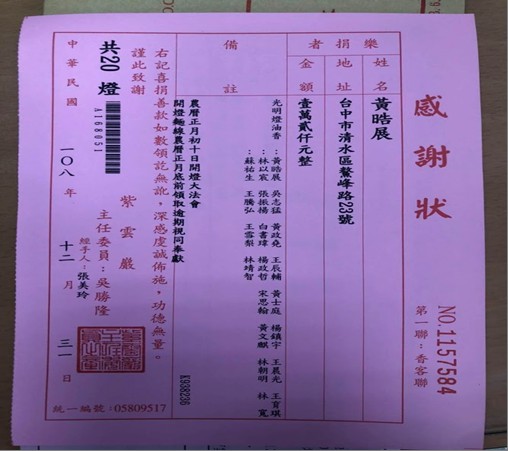 感謝狀
NO.1157584
第一聯：香客聯
樂捐者
姓名
黃晧展
地址
台中市清水區鰲峰路23號
金額
壹萬貳仟元整
備註
光明燈油香：黃晧展 吳志猛 黃政堯 王辰輔 黃士庭 楊鎮宇 王晨光 王育琪
：林以宸 張振楊 白書瑋 楊政哲 宋思翰 黃文麒 林朝明 林寬
：蘇祐生 王騰弘 王雪梨 林靖智
農曆正月初十日開燈大法會
開燈麵線農曆正月底前領取逾期視同奉獻
K938236
右記喜捐善款如數領訖無訛，深感虔誠佈施，功德無量。
謹此致謝
紫雲巖
主任委員：吳勝隆
經手人：張美玲
共20燈
A168051
中華民國一〇八年十二月三一日
統一編號：05809517